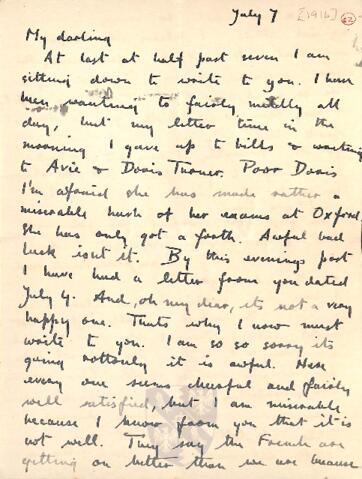 July 7 [1916] 62
My darling
At last at half past seven I am
sitting down to write to you. I have
been wanting to fairly madly all
day, but my letter time in the
morning I gave up to bills & writing
to Avie & Doris Turner. Poor Doris
I'm afraid she has made rather a
miserable hash of her exams at Oxford
She has only got a forth. Awful bad
luck isnt it. By this evenings post
I have had a letter from you dated
July 4. And, oh my dear, its not a very
happy one. Thats why I now must
write to you. I am so so sorry its
going rottenly it is awful. Here
every one seems cheerful and fairly
well satisfied, but I am miserable
because I know from you that it is
not well. They say the French are
getting on better than we are because